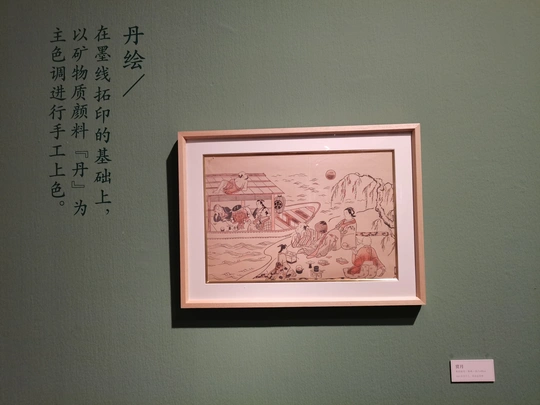 丹绘
在墨线拓印的基础上，
以矿物质颜料『丹』为
主色调进行手工上色。